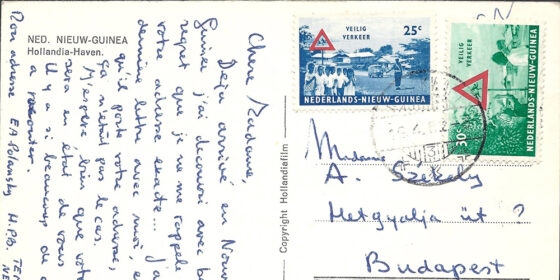 NED. NIEUW-GUINEA
Hollandia-Haven.
Chère Madame,
Déjà arrivé en Nouv
Guinée, j'ai découvri avec be
regret que je ne me rappelle
votre adresse exacte... J'a
dernière lettre avec moi, e
qu'il porte votre adresse,
ça n'était pas le cas.
M'espère bien que vot
sera en état de vous
Il y a si beaucoup de
a raconter.
Mon adresse EA Polansky H.P.B. TE
NE
Copyright Hollandiafilm
VEILIG
VERKEER
25c
NEDERLANDS-NIEUW-GUINEA
VEILIG
VERKEER
30c
NEDERLANDS-NIEUW-GUINEA
Madame
A. Székely
Hetgyalja út ?
Budapest